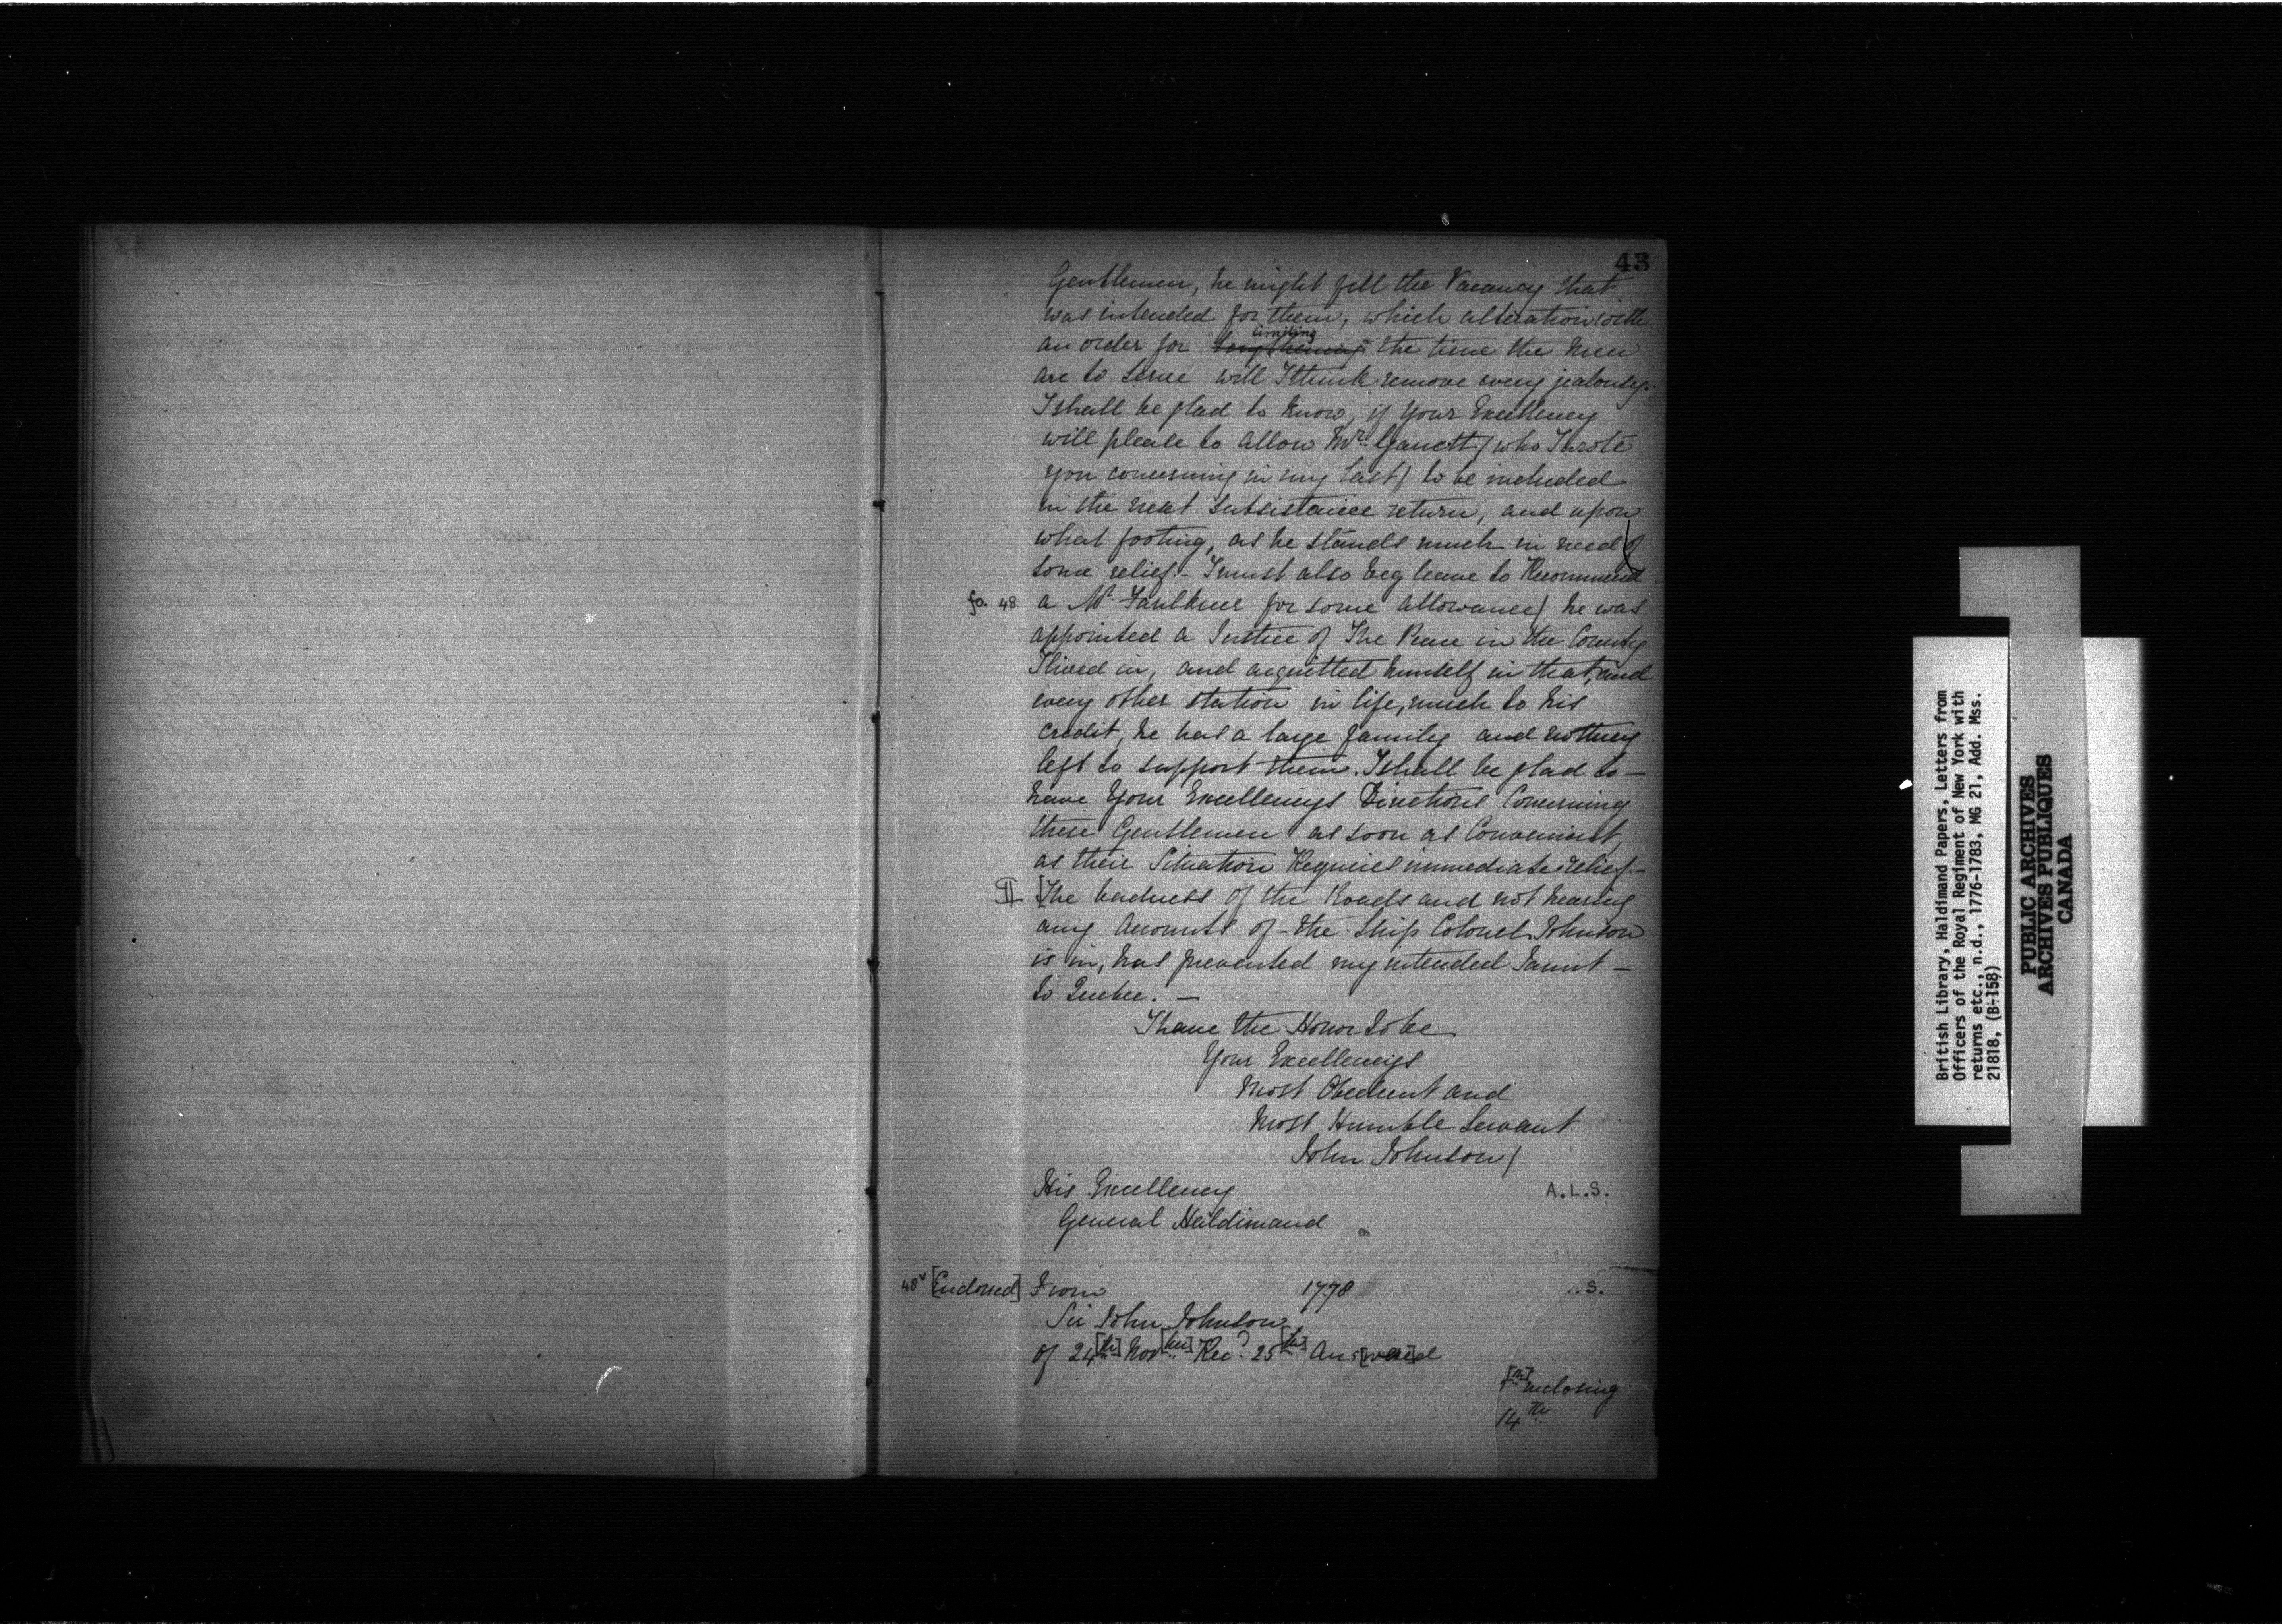 43
Gentlemen, he might fill the Vacancy that
was intended for them, which alteration with
limiting
an order for lengthening the time the Men
are to serve will I think remove every jealousy.
I shall be glad to know, if Your Excellency
will please to allow Mr. Garrett (who I wrote
you concerning in my last) to be included
in the next Subsistance return, and upon
what footing, as he stands much in need of
some relief.- I must also beg leave to Recommend
fo. 48 a Mr. Faulkner for some allowance/ he was
appointed a Justice of The Peace in the County
I lived in, and acquitted himself in that, and
every other station in life, much to his
credit, he has a large family and nothing
left to support them. I shall be glad to -
have Your Excellencys Directions Concerning
these Gentlemen as soon as Convenient,
as their Situation Requires immediate relief.-
II [The badness of the Roads and not hearing
any Accounts of - the Ship Colonel Johnson
is in, has prevented my intended Jaunt -
to Quebec. -
I have the Honor to be
Your Excellencys
Most Obedient and
Most Humble Servant
John Johnson/
His Excellency A.L.S.
General Haldimand
48v [Endorsed] From 1778 ..S.
Sir John Johnson
of 24[th] Nov[ber] Rec'd 25[th] Ans[were]d
inclosing
14th
British Library, Haldimand Papers, Letters from
Officers of the Royal Regiment of New York with
returns etc., n.d., 1776-1783, MG 21, Add. Mss.
21818, (B-158)
PUBLIC ARCHIVES
ARCHIVES PUBLIQUES
CANADA